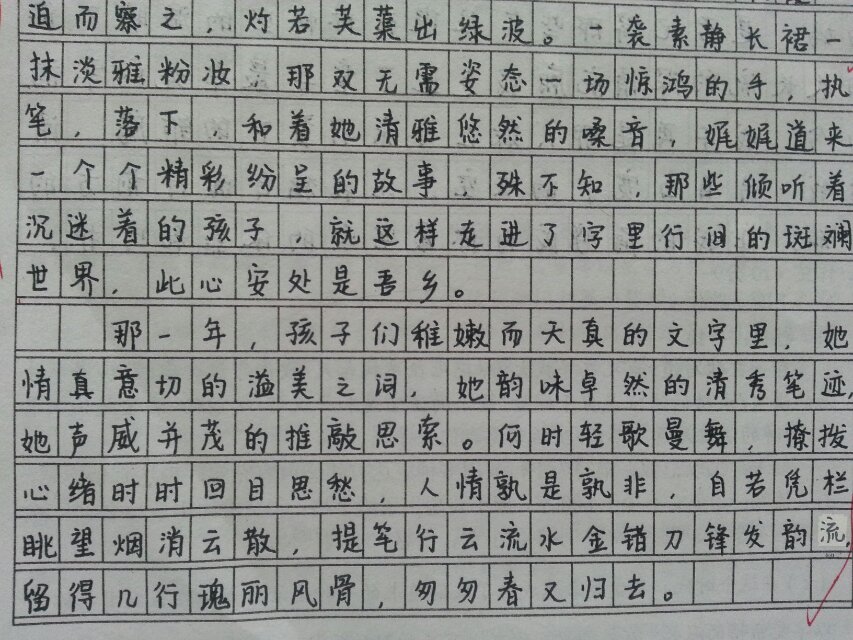 迫而察之，灼若芙蕖出绿波。一袭素静长裙一
抹淡雅粉妆，那双无需姿态一场惊鸿的手，执
笔，落下，和着她清雅悠然的嗓音，娓娓道来
一个个精彩纷呈的故事，殊不知，那些倾听着
沉迷着的孩子，就这样走进了字里行间的斑斓
世界，此心安处是吾乡。
那一年，孩子们稚嫩而天真的文字里，她
情真意切的溢美之词，她韵味卓然的清秀笔迹，
她声威并茂的推敲思索。何时轻歌曼舞，撩拨
心绪时时回目思愁，人情孰是孰非，自若凭栏
眺望烟消云散，提笔行云流水金错刀锋发韵流，
留得几行瑰丽风骨，匆匆春又归去。